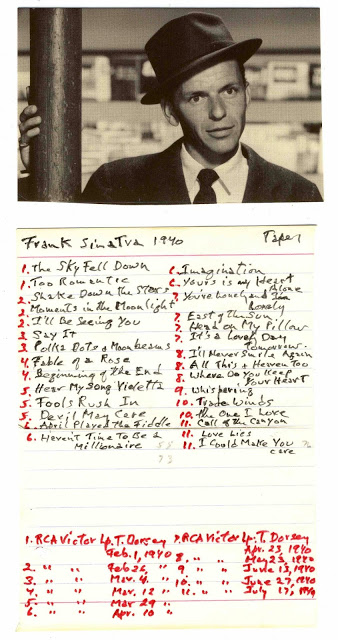 Frank Sinatra 1940 Tape 1
1. The Sky Fell Down
1. Too Romantic
2. Shake Down the Stars
2. Moments in the Moonlight
2. I'll Be Seeing You
3. Say It
3. Polka Dots & Moonbeams
4. Fable of a Rose
4. Beginning of the End
5. Hear My Song Violetta
5. Fools Rush In
5. Devil May Care
6. April Played the Fiddle
6. Haven't Time To Be a
Millionaire 58
73
6. Imagination
6. Yours is My Heart
Alone
7. You're Lonely and I'm
Lonely
7. East of the Sun
7. Head on My Pillow
7. It's a Lovely Day
Tomorrow.
8. I'll Never Smile Again
8. All This & Heaven Too
8. Where Do You Keep
Your Heart
9. Whispering
10. Trade Winds
10. The One I Love
11. Call of the Canyon
11. Love Lies
11. I Could Make You
care
1. RCA Victor Lp. T. Dorsey
Feb. 1, 1940
2. " " Feb 26, "
3. " " Mar. 4. "
4. " " Mar. 12 "
5. " " Mar 29 "
6. " " Apr. 10 "
7. RCA Victor Lp. T. Dorsey
Apr. 23, 1940
8. " " May 23, 1940
9 " " June 13, 1940
10. " " June 27, 1940
11. " " July 17, 1940